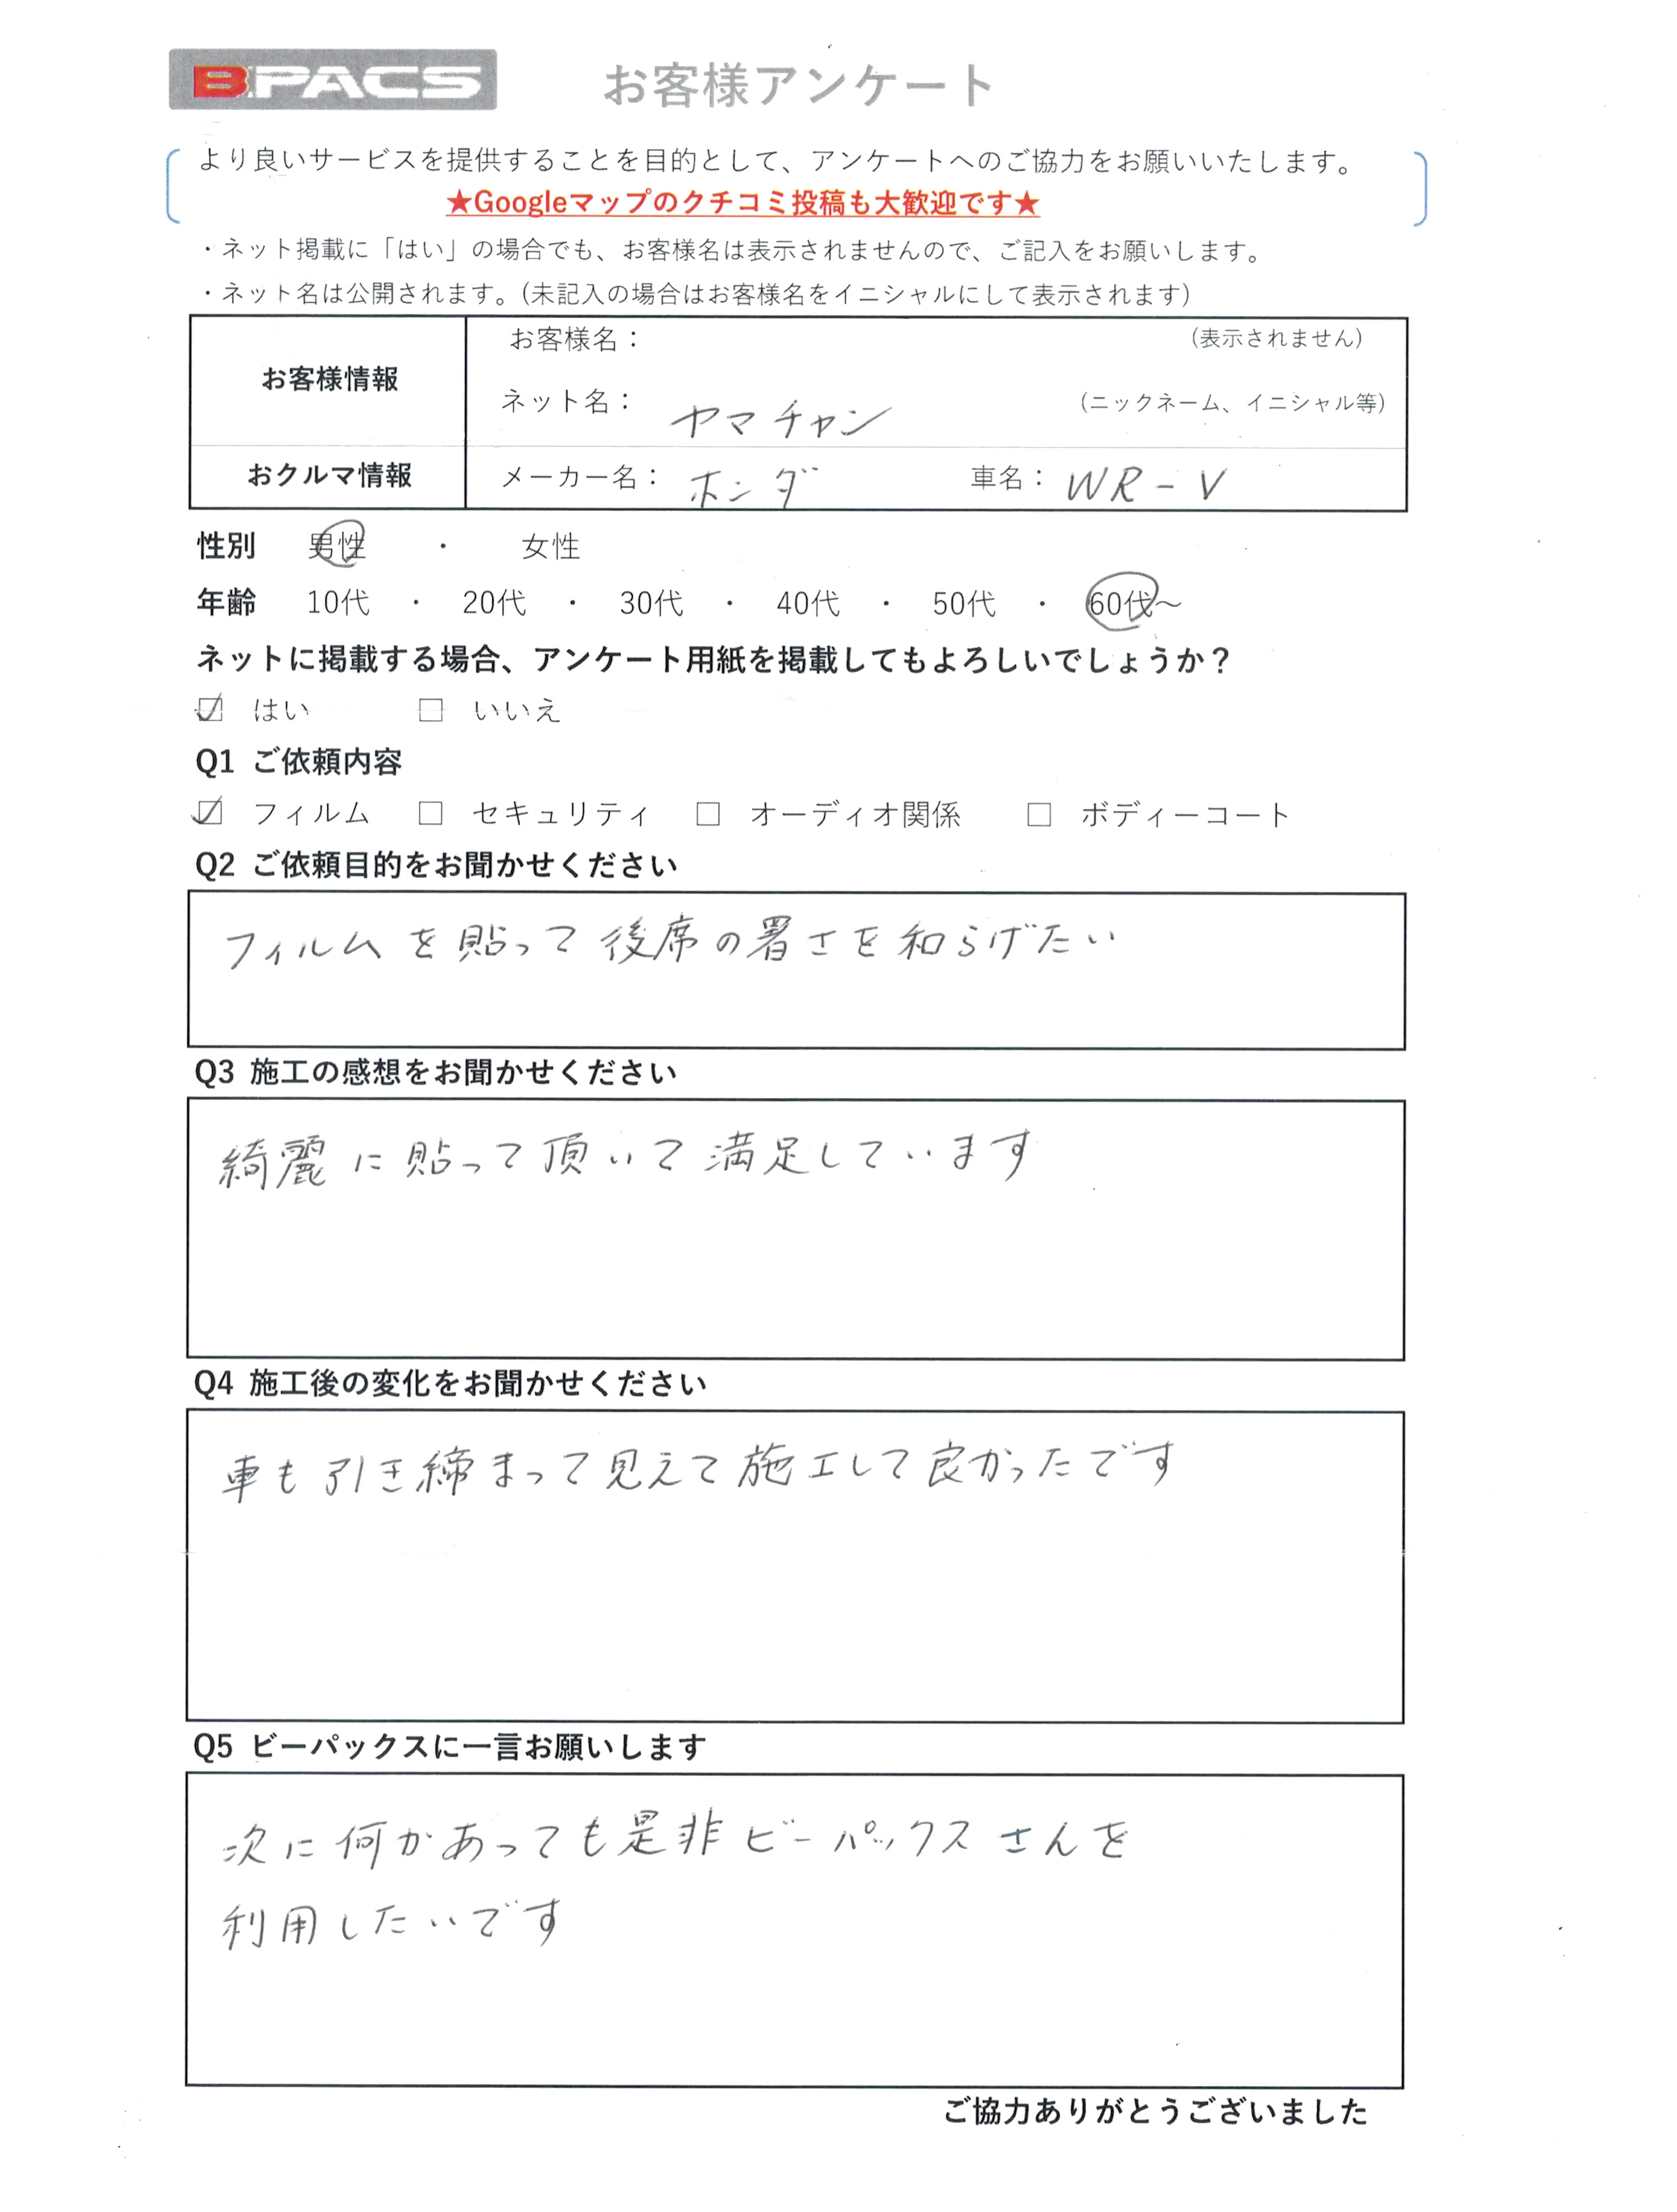 B-PACS お客様アンケート
より良いサービスを提供することを目的として、アンケートへのご協力をお願いいたします。
★Googleマップのクチコミ投稿も大歓迎です★
・ネット掲載に「はい」の場合でも、お客様名は表示されませんので、ご記入をお願いします。
・ネット名は公開されます。(未記入の場合はお客様名をイニシャルにして表示されます)
お客様情報 お客様名： (表示されません)
ネット名： ヤマチャン (ニックネーム、イニシャル等)
おクルマ情報 メーカー名： ホンダ 車名： WR-V
性別 男性 ・ 女性
年齢 10代 ・ 20代 ・ 30代 ・ 40代 ・ 50代 ・ 60代～
ネットに掲載する場合、アンケート用紙を掲載してもよろしいでしょうか？
☑ はい □ いいえ
Q1 ご依頼内容
☑ フィルム □ セキュリティ □ オーディオ関係 □ ボディーコート
Q2 ご依頼目的をお聞かせください
フィルムを貼って後席の署さを和らげたい
Q3 施工の感想をお聞かせください
綺麗に貼って頂いて満足しています
Q4 施工後の変化をお聞かせください
車も引き締まって見えて施工して良かったです
Q5 ビーパックスに一言お願いします
次に何かあっても是非ビーパックスさんを
利用したいです
ご協力ありがとうございました